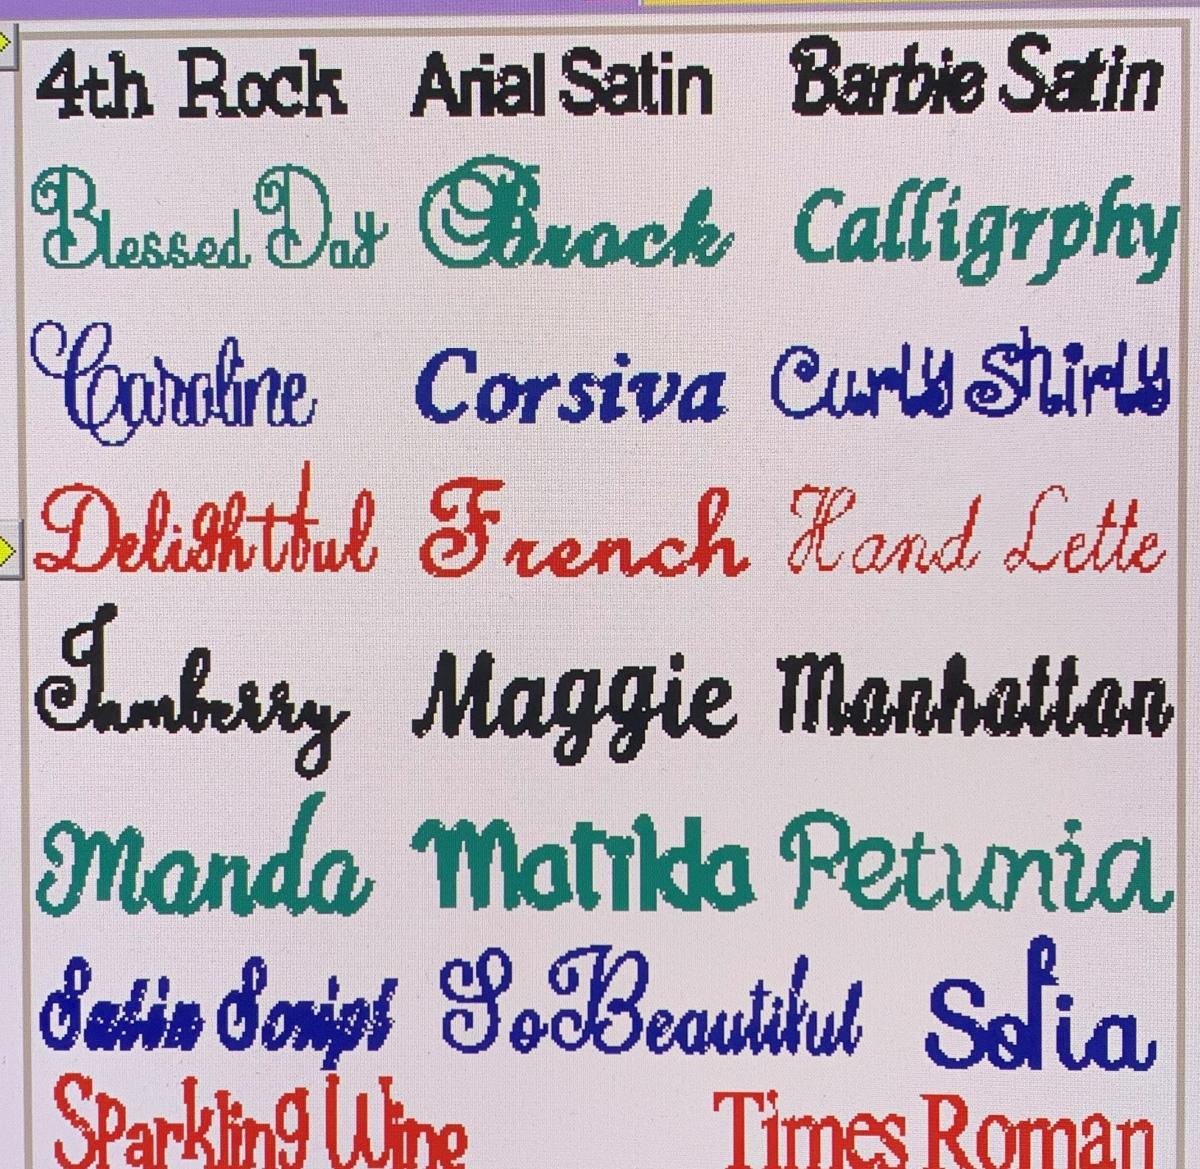 4th Rock Arial Satin Barbie Satin
Blessed Day Brock Calligrphy
Caroline Corsiva Curly Shirly
Delightful French Hand Lette
Jamberry Maggie Manhattan
Manda Matilda Petunia
Satin Script So Beautiful Sofia
Sparkling Wine Times Roman